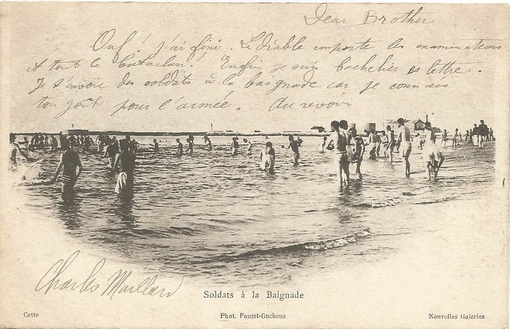 Dear Brother
Ouf! j'ai fini. Le diable emporte les examinateurs
et tout le bataclan. Enfin je suis bachelier ès lettre.
Je t'envoie des soldats à la baignade car je connais
ton goût pour l'armée. Au revoir
Charles Maillard
Soldats à la Baignade
Cette Phot. Pontet-Guchens Nouvelles Galeries